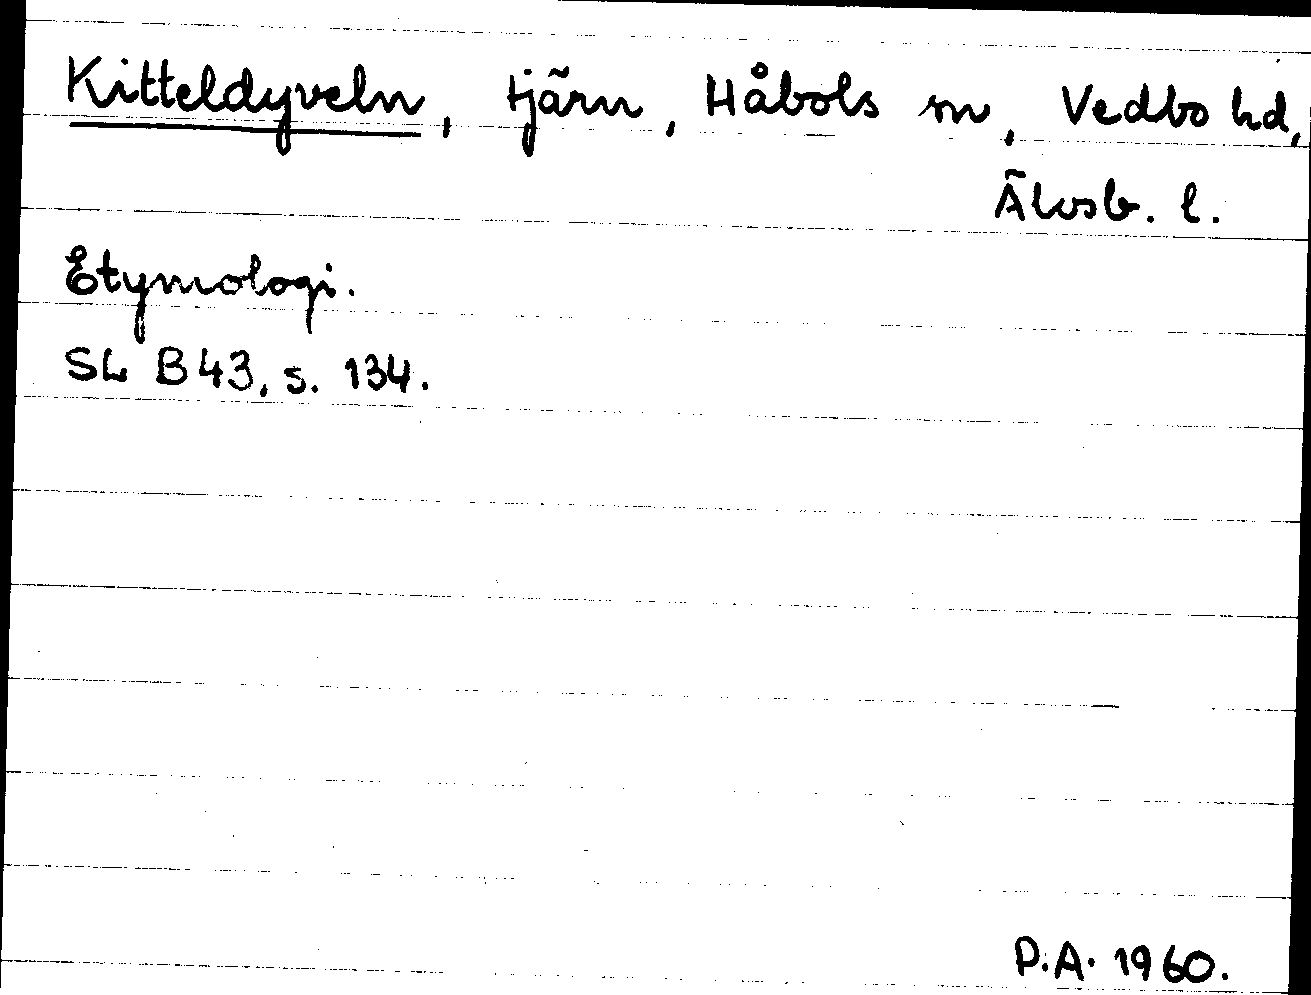 Kitteldyveln, tjärn, Håbols sn, Vedbo hd,
Älvsb. l.
Etymologi.
SL B43, s. 134.
P.A. 1960.